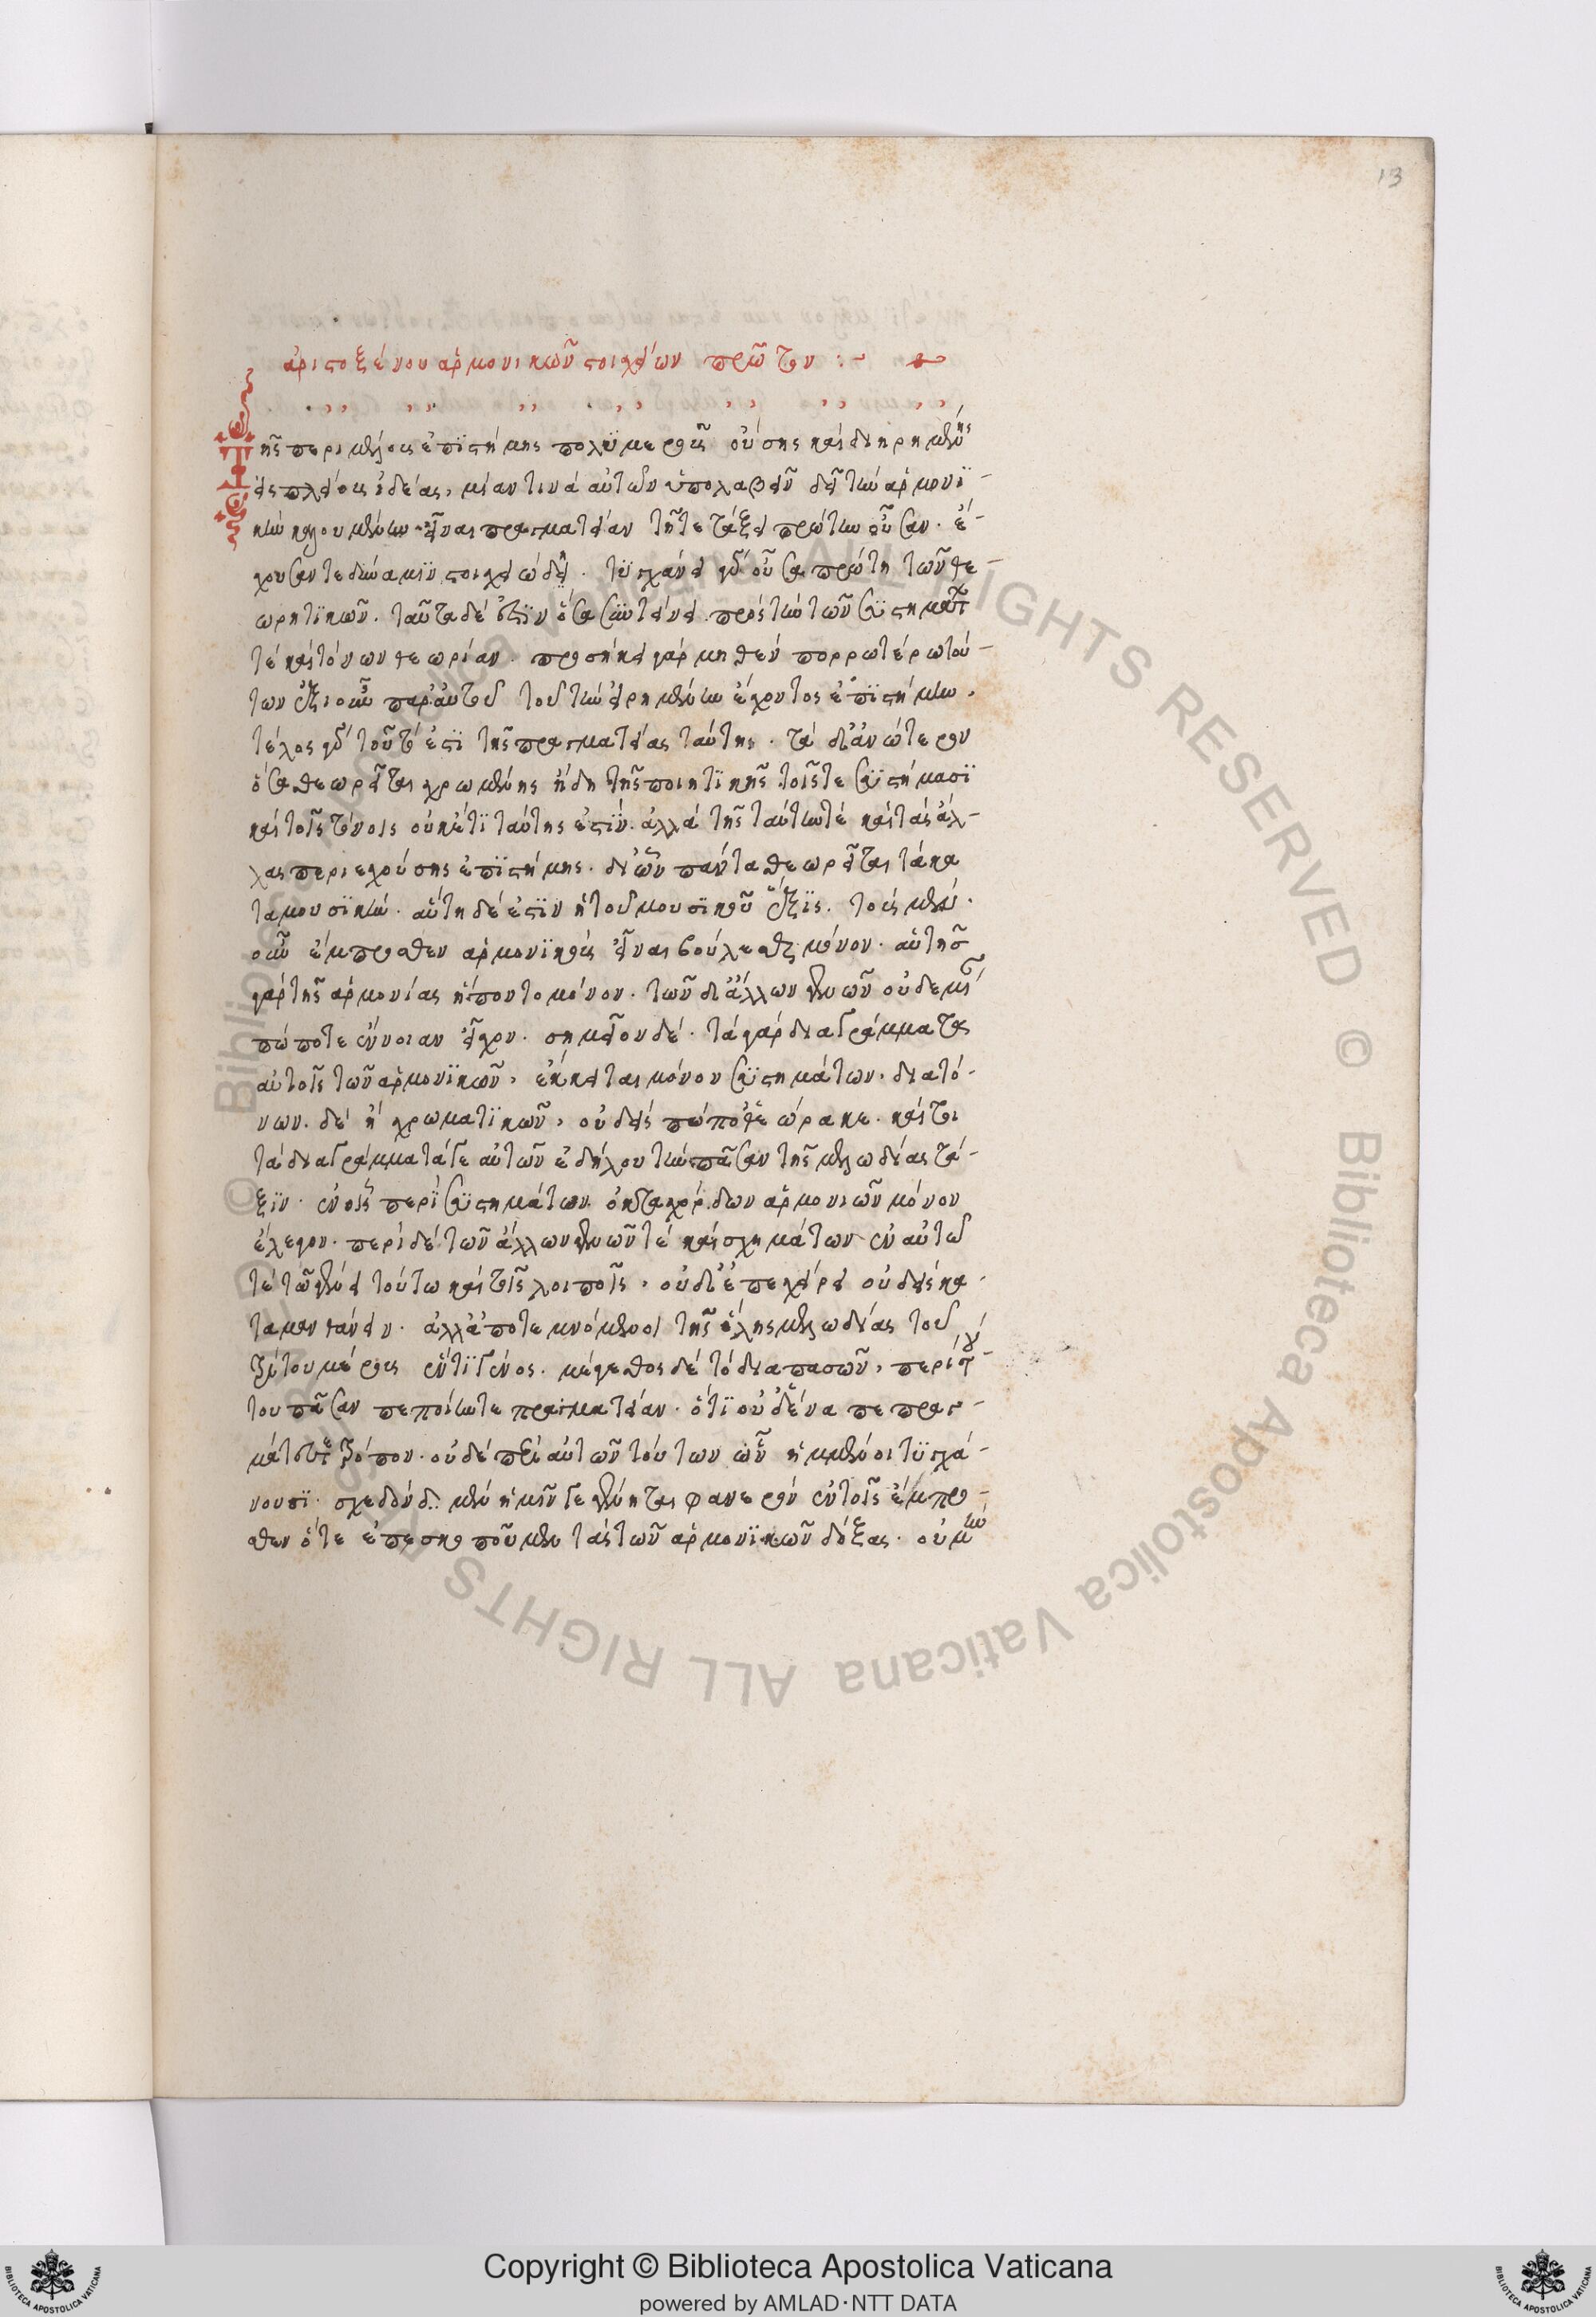 13
ἀριστοξένου ἁρμονικῶν στοιχείων πρῶτον :~
Τῆς περὶ μέλους ἐπιστήμης πολυμεροῦς οὔσης καὶ διῃρημένης
εἰς πλείους ἰδέας, μίαν τινὰ αὐτῶν ὑπολαβεῖν δεῖ τὴν ἁρμονι-
κὴν καλουμένην εἶναι πραγματείαν τῇ τε τάξει πρώτην οὖσαν. ἔ-
χουσάν τε δύναμιν στοιχειώδη. τυγχάνει γὰρ οὖσα πρώτη τῶν θε-
ωρητικῶν. ταῦτα δέ ἐστιν ὅσα συντείνει πρὸς τὴν τῶν συστημάτων
τὲ καὶ τόνων θεωρίαν. προσήκει γὰρ μηθὲν πορρωτέρω τού-
των ἀξιοῦν παρ' αὐτοῦ τοῦ τὴν εἰρημένην ἔχοντος ἐπιστήμην.
τέλος γὰρ τοῦτό ἐστι τῆς πραγματείας ταύτης. τὰ δ' ἀνώτερον
ὅσα θεωρεῖται χρωμένης ἤδη τῆς ποιητικῆς τοῖς τε συστήμασι
καὶ τοῖς τόνοις οὐκέτι ταύτης ἐστίν. ἀλλὰ τῆς ταύτην τὲ καὶ τὰς ἄλ-
λας περιεχούσης ἐπιστήμης. δι' ὧν πάντα θεωρεῖται τὰ κα
τὰ μουσικήν. αὕτη δέ ἐστιν ἡ τοῦ μουσικοῦ ἕξις. τοὺς μὲν.
οὖν ἔμπροσθεν ἁρμονικοὺς εἶναι βούλεσθαι μόνον. αὐτῆς
γὰρ τῆς ἁρμονίας ἥπτοντο μόνον. τῶν δ' ἄλλων γενῶν οὐδεμίαν
πώποτε ἔννοιαν εἶχον. σημεῖον δέ. τὰ γὰρ διαγράμματα
αὐτοῖς τῶν ἁρμονικῶν, ἔκκειται μόνον συστημάτων. διατό-
νων. δὲ ἢ χρωματικῶν, οὐδεὶς πώποθ' ἑώρακε. καί τοι
τὰ διαγράμματά γε αὐτῶν ἐδήλου τὴν πᾶσαν τῆς μελῳδίας τά-
ξιν. ἐν οἷς περὶ συστημάτων ὀκταχόρδων ἁρμονιῶν μόνον
ἔλεγον. περὶ δὲ τῶν ἄλλων γενῶν τὲ καὶ σχημάτων ἐν αὐτῷ
τὲ τῷ γένει τούτῳ καὶ τοῖς λοιποῖς, οὐδ' ἐπεχείρει οὐδεὶς κα-
ταμανθάνειν. ἀλλ' ἀποτεμνόμενοι τῆς ὅλης μελῳδίας τοῦ
τρίτου μέρους ἕν τι γένος. μέγεθος δὲ τὸ διαπασῶν, περὶ τού-
του πᾶσαν πεποίηνται πραγματείαν. ὅτι οὐδένα πεπραγ-
μάτευνται τρόπον. οὐδὲ περὶ αὐτῶν τούτων ὧν ἡμμένοι τυγχά-
νουσι. σχεδὸν δ.. μὲν ἡμῖν γεγένηται φανερὸν ἐν τοῖς ἔμπρο
σθεν ὅτε ἐπεσκοποῦμεν τὰς τῶν ἁρμονικῶν δόξας. οὐ μὴν
Copyright © Biblioteca Apostolica Vaticana
powered by AMLAD·NTT DATA